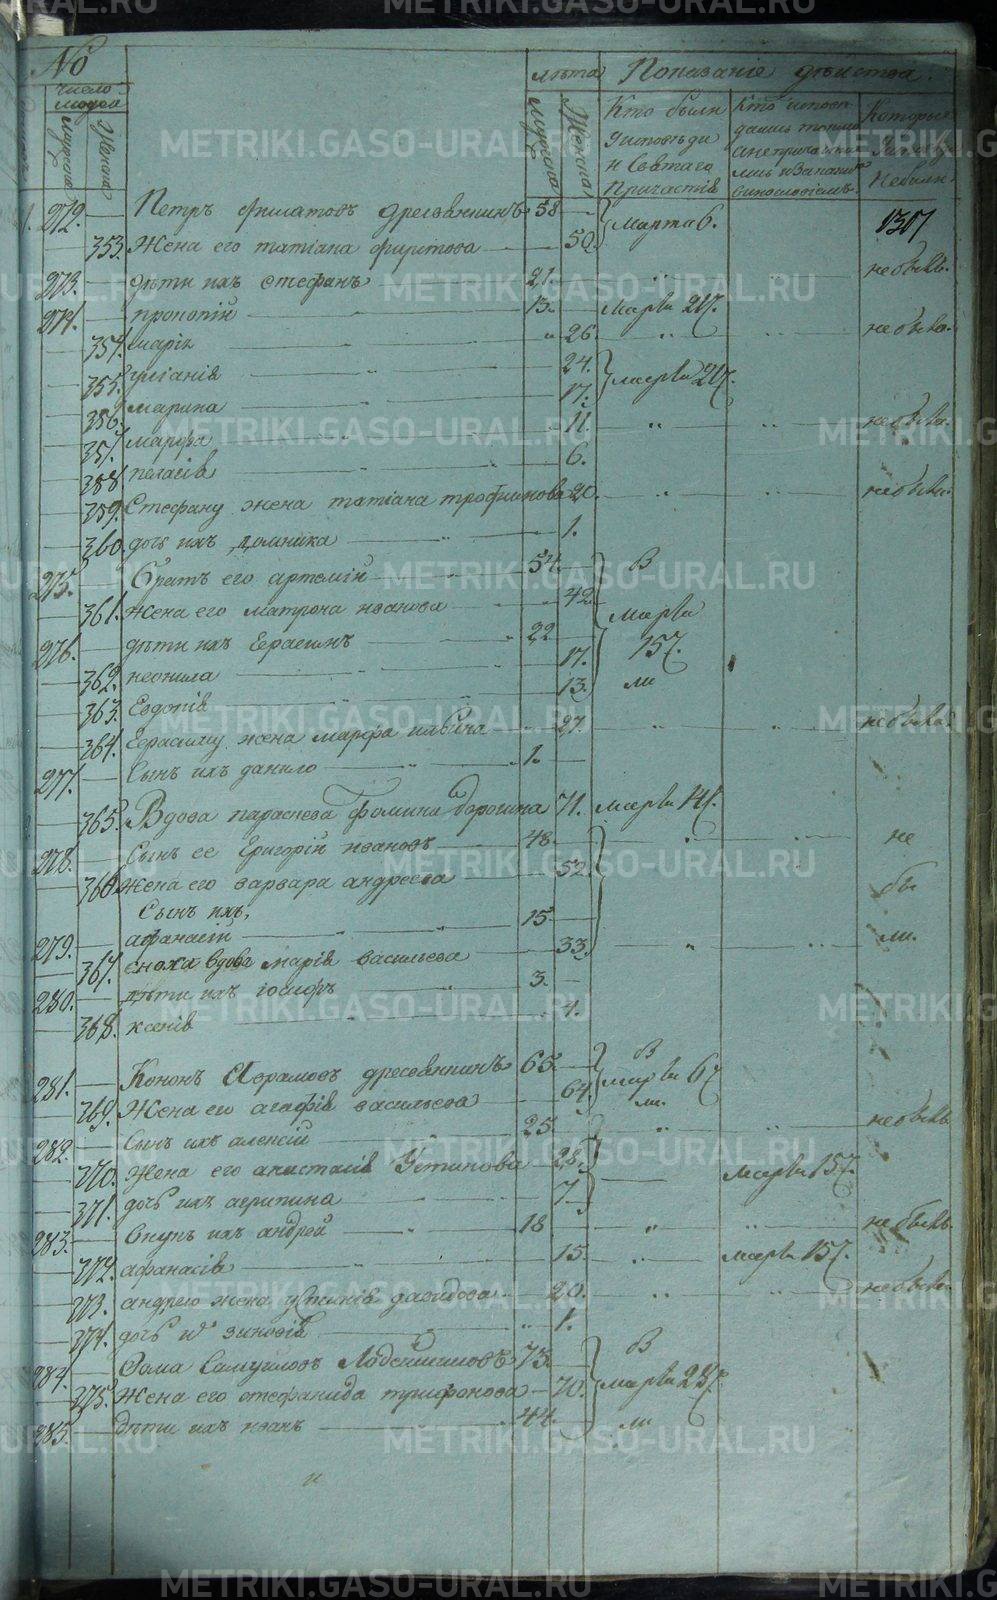 №
число людей
мужеска
женска
лѣта
мужеска
женска
Показаніе дѣйства.
Кто были у исповѣди и Святаго Причастія
Кто исповѣдались токмо а не причастились и за каким
Которые
не были.
1307
272. Петръ Филатовъ Дресвянкинъ 58 Марта 6.
353. Жена его татіана 50.
273. дѣти ихъ стефанъ 21. не бывъ.
274. прокопій 13. Марта 27.
354. марія 26. не была.
355. 24. Марта 27.
356. марина 17.
357. марфа 11. не была.
358. пелагія 6.
359. Стефану жена татіана трофимова 20. не была.
360. дочь ихъ домника 1.
275. Братъ его артемій 54. В
361. Жена его матрона иванова 42 Марта
276. дѣти ихъ Герасимъ 22 15.
362. неонила 17.
363. Евдокія 13. ли
364. Герасиму жена марфа 27. не была
277. Сынъ ихъ данило 1.
365. Вдова параскева Фомина 71. Марта 14.
278. Сынъ ее Григорій ивановъ 48. не
366 Жена его варвара андреева 52. бы
Сынъ ихъ,
279. афанасій 15 ли.
367. вдова марія васильева 33.
280. дѣти ихъ іосифъ 3.
368. ксенія 4.
281. Кононъ Аврамовъ дресвянкинъ 65. В
369. Жена его агафія васильева 64. Марта 6
ли.
282. Сынъ ихъ алексій 25 не бывъ
370. Жена его анастасія Устинова 28. Марта 15.
371. дочь ихъ агрипина 7.
283. Внукъ ихъ андрей 18 не бывъ.
372. афанасія 15. Марта 15.
373. андрею жена устинія давидова 20. не была.
374. дочь ихъ зиновія 1.
284. Фома Самуиловъ 73. В
375. Жена его стефанида трифонова 70. Марта 23.
285. дѣти ихъ иванъ 44. ли
METRIKI.GASO-URAL.RU